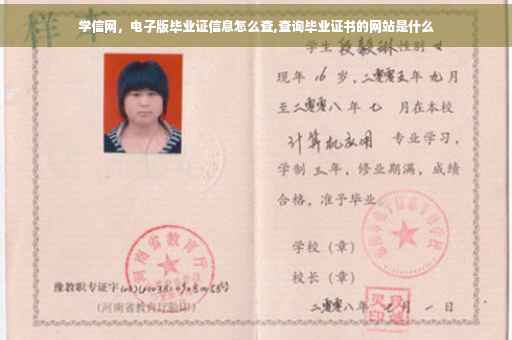 学信网，电子版毕业证信息怎么查,查询毕业证书的网站是什么
样本
学生 段毅琳 性别 女
现年 16 岁，二零零五年 九月
至二零零八年 七 月在本校
计算机应用 专业学习，
学制 三 年，修业期满，成绩
合格，准予毕业。
学校（章）
校长（章）
二零零八年 七 月 一 日
河南省教育厅
豫教职专证字
（河南省教育厅验印）